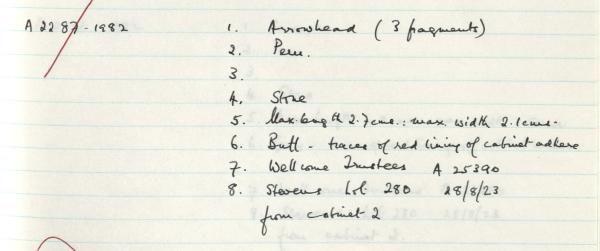 A 2287-1982 1. Arrowhead (3 fragments)
2. Peru.
3.
4. Stone
5. Max. length 2.7cms.: max. width 2.1cms.
6. Butt - traces of red lining of cabinet adhere
7. Wellcome Trustees A 25390
8. Stevens Lot 280 28/8/23
from cabinet 2